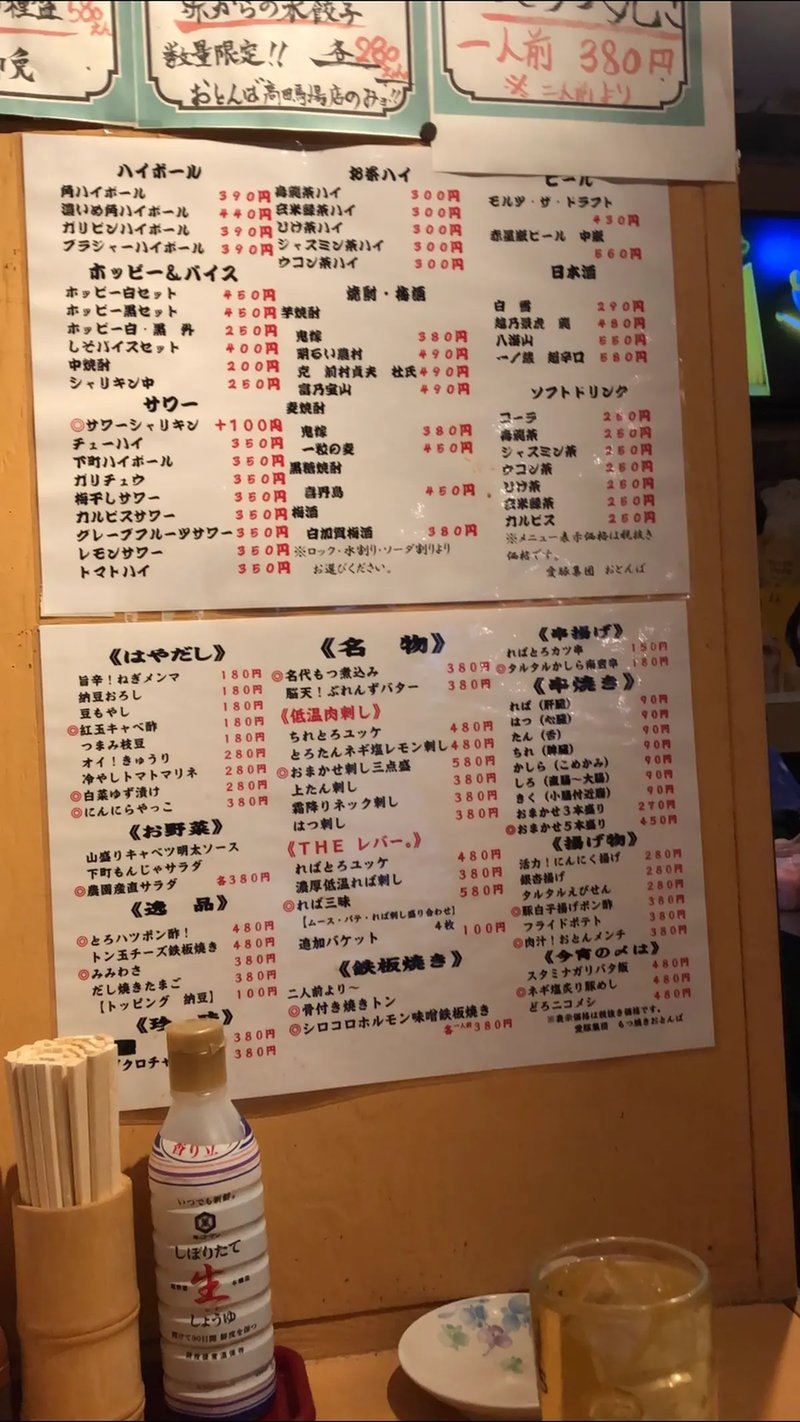 580えん
赤からの水餃子
数量限定!! 各280えん
おとんば高田馬場店のみ!!
一人前 380円
※二人前より
ハイボール
角ハイボール 390円
濃いめ角ハイボール 440円
ガリビンハイボール 390円
ブラジャーハイボール 390円
ホッピー&バイス
ホッピー白セット 450円
ホッピー黒セット 450円
ホッピー白・黒 丹 250円
しそバイスセット 400円
中焼酎 200円
シャリキン中 250円
サワー
◎サワーシャリキン +100円
チューハイ 350円
下町ハイボール 350円
ガリチュウ 350円
梅干しサワー 350円
カルピスサワー 350円
グレープフルーツサワー 350円
レモンサワー 350円
トマトハイ 350円
お茶ハイ
烏龍茶ハイ 300円
玄米緑茶ハイ 300円
ひげ茶ハイ 300円
ジャスミン茶ハイ 300円
ウコン茶ハイ 300円
焼酎・梅酒
芋焼酎
鬼嫁 380円
明るい農村 490円
克 前村貞夫 杜氏 490円
富乃宝山 490円
麦焼酎
鬼嫁 380円
一粒の麦 450円
黒糖焼酎
喜界島 450円
梅酒
白加賀梅酒 380円
※ロック・水割り・ソーダ割りより
お選びください。
ビール
モルツ・ザ・ドラフト
430円
赤星瓶ビール 中瓶
560円
日本酒
白雪 290円
越乃景虎 龍 480円
八海山 550円
一ノ蔵 超辛口 580円
ソフトドリンク
コーラ 250円
烏龍茶 250円
ジャスミン茶 250円
ウコン茶 250円
ひげ茶 250円
玄米緑茶 250円
カルピス 250円
※メニュー表示価格は税抜き
価格です。
愛豚集団 おとんば
《はやだし》
旨辛!ねぎメンマ 180円
納豆おろし 180円
豆もやし 180円
◎紅玉キャベ酢 180円
つまみ枝豆 180円
オイ!きゅうり 280円
冷やしトマトマリネ 280円
◎白菜ゆず漬け 280円
◎にんにらやっこ 380円
《お野菜》
山盛りキャベツ明太ソース
下町もんじゃサラダ
◎農園産直サラダ 各380円
《逸品》
◎とろハツポン酢! 480円
トン玉チーズ鉄板焼き 480円
◎みみわさ 380円
だし焼きたまご 380円
【トッピング 納豆】 100円
《珍味》
380円
380円
《名物》
◎名代もつ煮込み 380円
脳天!ぶれんずバター 380円
《低温肉刺し》
ちれとろユッケ 480円
とろたんネギ塩レモン刺し 480円
◎おまかせ刺し三点盛 580円
上たん刺し 380円
霜降りネック刺し 380円
はつ刺し 380円
《THE レバー。》
ればとろユッケ 480円
濃厚低温れば刺し 380円
◎れば三昧 580円
【ムース・パテ・れば刺し盛り合わせ】
追加バケット 4枚 100円
《鉄板焼き》
二人前より〜
◎骨付き焼きトン
◎シロコロホルモン味噌鉄板焼き
各一人前380円
《串揚げ》
ればとろカツ串 150円
◎タルタルかしら南蛮串 180円
《串焼き》
れば(肝臓) 90円
はつ(心臓) 90円
たん(舌) 90円
ちれ(脾臓) 90円
かしら(こめかみ) 90円
しろ(直腸〜大腸) 90円
きく(小腸付近膜) 90円
おまかせ3本盛り 270円
◎おまかせ5本盛り 450円
《揚げ物》
活力!にんにく揚げ 280円
銀杏揚げ 280円
タルタルえびせん 280円
◎豚白子揚げポン酢 380円
フライドポテト 380円
◎肉汁!おとんメンチ 380円
《今宵の〆は》
スタミナガリバタ飯 480円
◎ネギ塩炙り豚めし 480円
どろニコメシ 480円
※表示価格は税抜き価格です。
愛豚集団 もつ焼きおとんば
香り立
いつでも新鮮。
キッコーマン
しぼりたて
生
しょうゆ
開けて90日間 鮮度を保つ